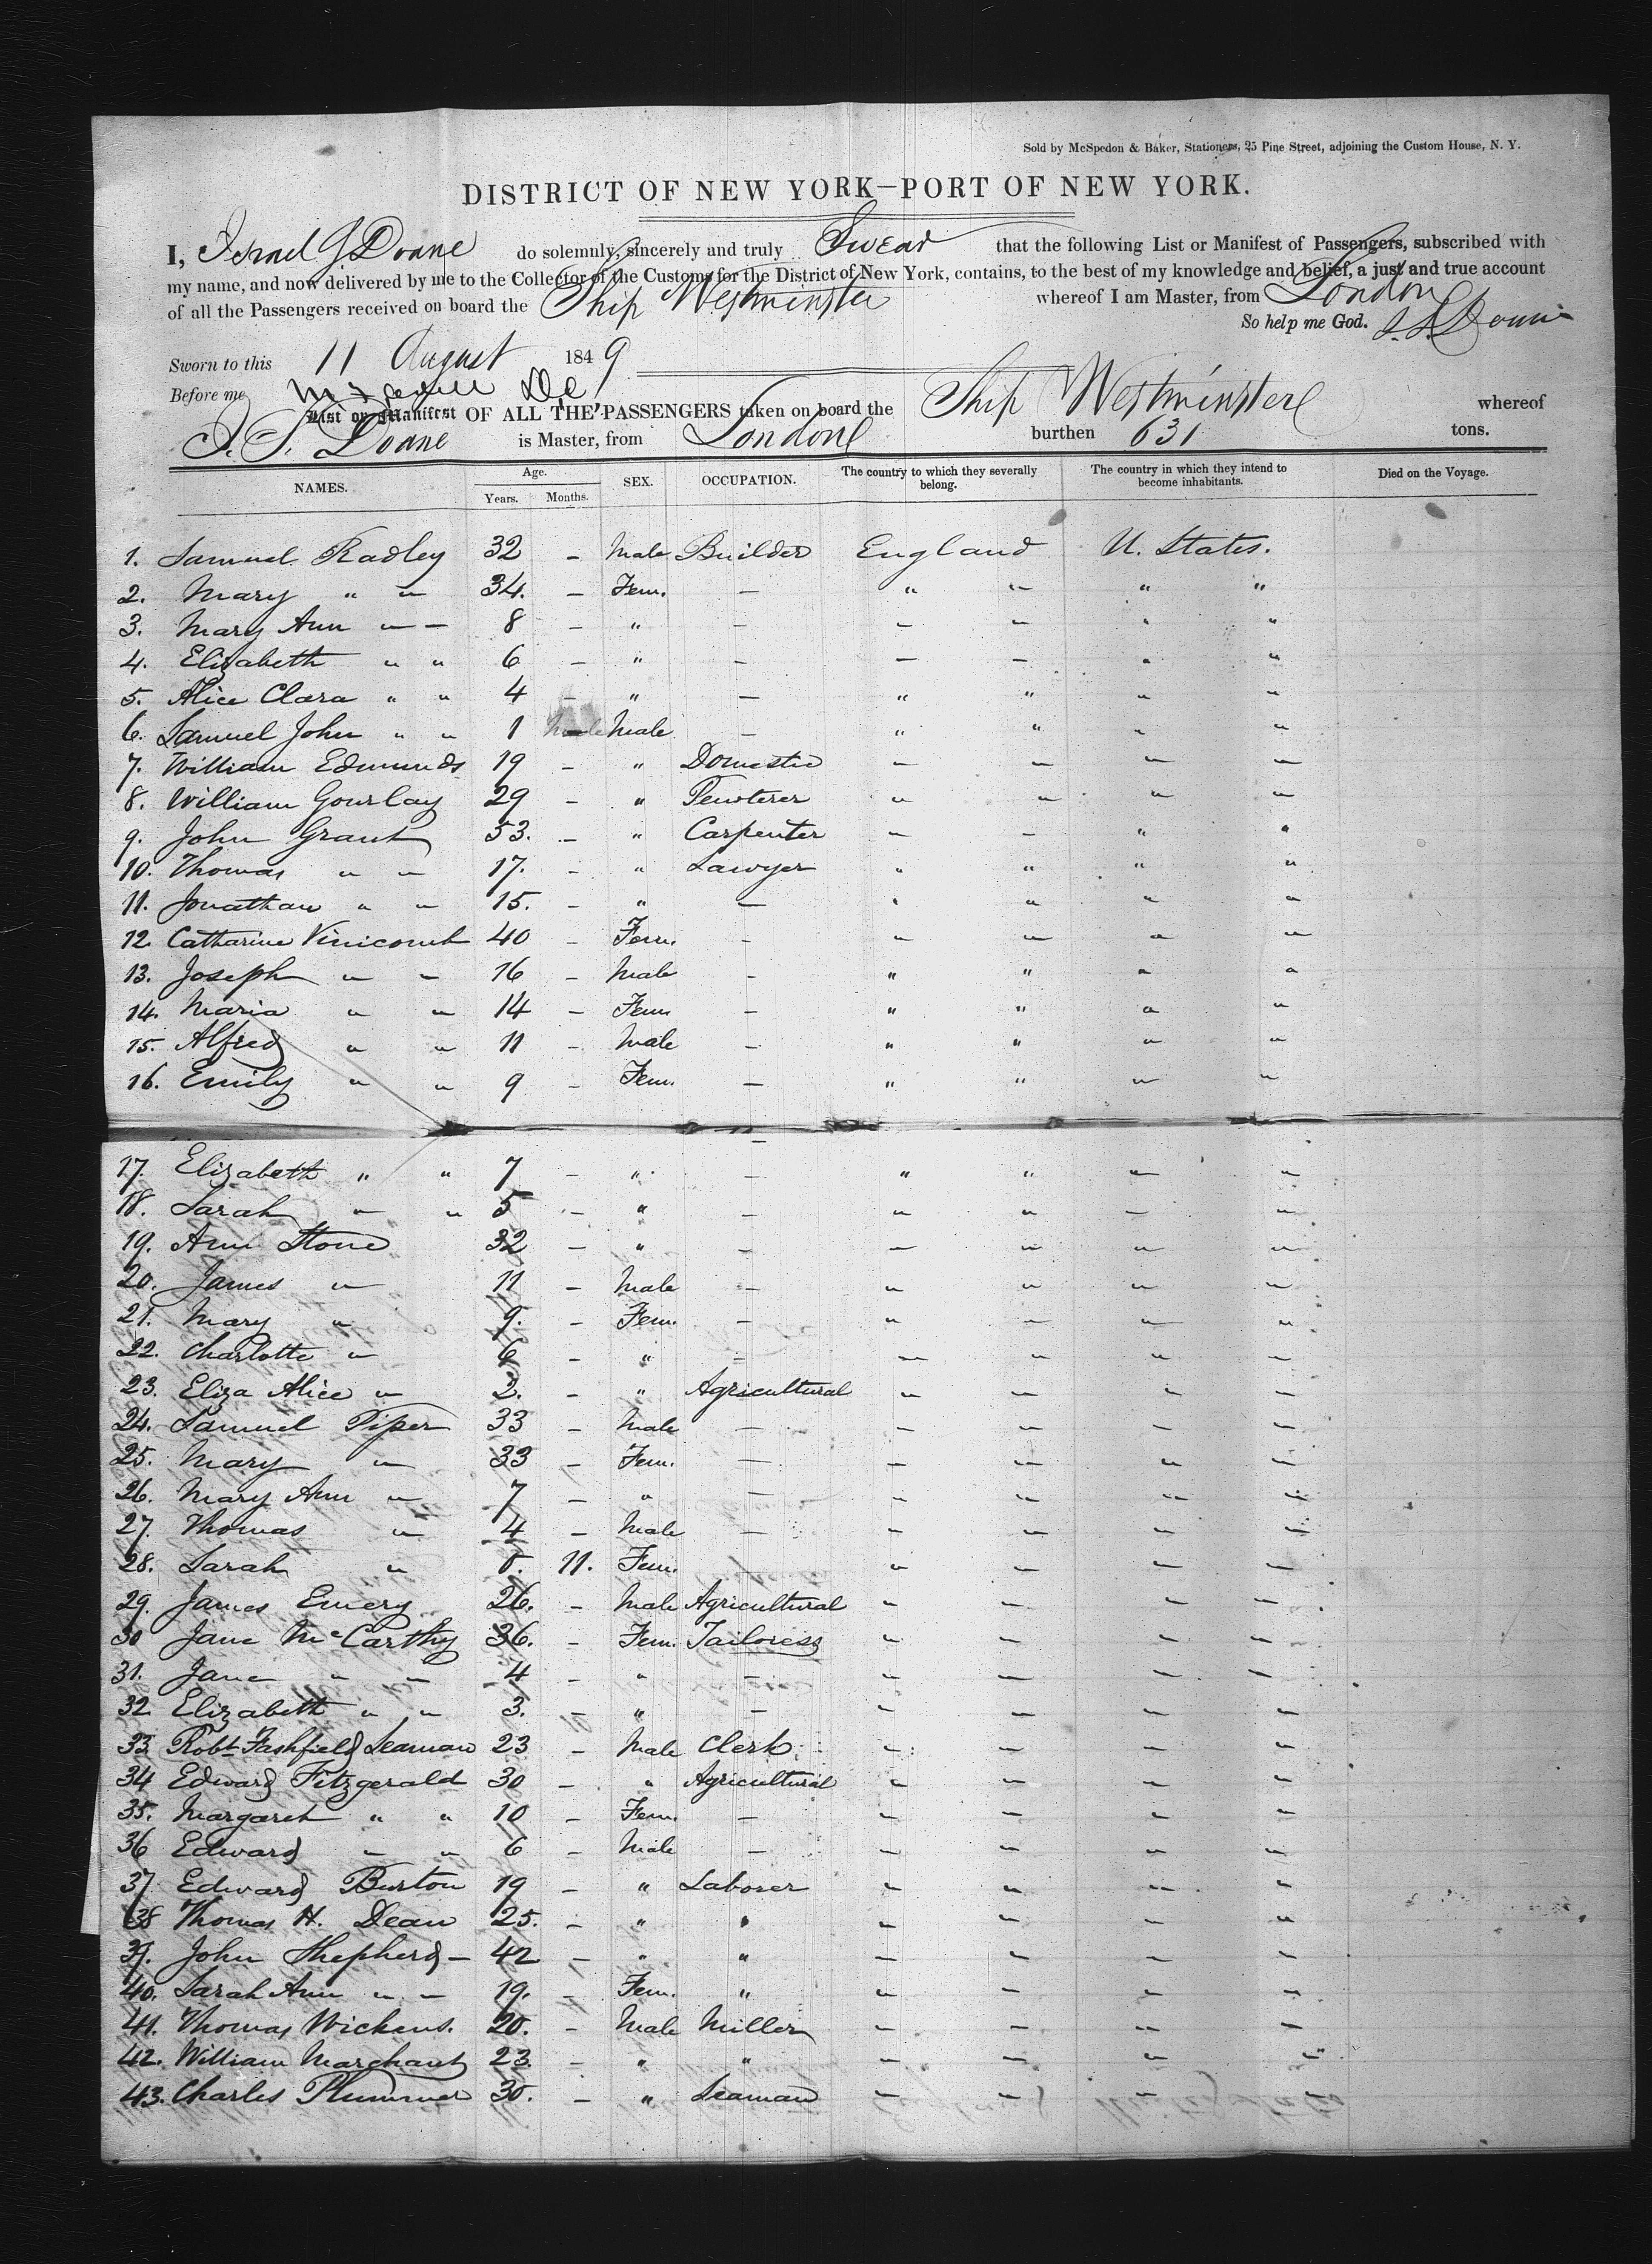 Sold by McSpedon & Baker, Stationers, 25 Pine Street, adjoining the Custom House, N. Y.
DISTRICT OF NEW YORK—PORT OF NEW YORK.
I, Israel J Doane do solemnly, sincerely and truly Swear that the following List or Manifest of Passengers, subscribed with
my name, and now delivered by me to the Collector of the Customs for the District of New York, contains, to the best of my knowledge and belief, a just and true account
of all the Passengers received on board the Ship Westminster whereof I am Master, from London
So help me God. Doane
Sworn to this 11 August 1849
Before me
List or Manifest OF ALL THE PASSENGERS taken on board the Ship Westminster whereof
Doane is Master, from London burthen 631 tons.
NAMES. Age. Years. Months. SEX. OCCUPATION. The country to which they severally belong. The country in which they intend to become inhabitants. Died on the Voyage.
1. Samuel Radley 32 - Male Builder England U. States.
2. Mary " " 34. - Fem. - " " " "
3. Mary Ann " - 8 - " - " " " "
4. Elizabeth " " 6 - " - - - " "
5. Alice Clara " " 4 - " - " " " "
6. Samuel John " " 1 - Male - " " " "
7. William Edmunds 19 - " Domestic " " " "
8. William Gourlay 29 - " Pewterer " " " "
9. John Grant 53. - " Carpenter " " " "
10. Thomas " " 17. - " Lawyer " " " "
11. Jonathan " " 15. - " - " " " "
12. Catharine Vinicomb 40 - Fem. - " " " "
13. Joseph " " 16 - Male - " " " "
14. Maria " " 14 - Fem - " " " "
15. Alfred " " 11 - Male - " " " "
16. Emily " " 9 - Fem. - " " " "
17. Elizabeth " " 7 - " - " " " "
18. Sarah " " 5 - " - " " " "
19. Ann Stone 32 - " - " " " "
20. James " 11 - Male - " " " "
21. Mary " 9. - Fem. - " " " "
22. Charlotte " 6 - " - " " " "
23. Eliza Alice " 2. - " Agricultural " " " "
24. Samuel Piper 33 - Male - " " " "
25. Mary " 33 - Fem. - " " " "
26. Mary Ann " 7 - " - " " " "
27. Thomas " 4 - Male - " " " "
28. Sarah " 0. 11. Fem. - " " " "
29. James Emery 26. - Male Agricultural " " " "
30 Jane McCarthy 36. - Fem. Tailoress " " " "
31. Jane " " 4 - " - " " " "
32. Elizabeth " " 3. - " - " " " "
33. Robt Seaman 23 - Male Clerk " " " "
34 Edward Fitzgerald 30 - " Agricultural " " " "
35. Margaret " " 10 - Fem. - " " " "
36 Edward " " 6 - Male - " " " "
37 Edward Burton 19 - " Laborer " " " "
38 Thomas H. Dean 25. - " " " " " "
39. John Shepherd - 42 - " " " " " "
40. Sarah Ann " - 19. - Fem. " " " " "
41. Thomas Wickens. 20. - Male Miller " " " "
42. William Marchant 23. - " " " " " "
43. Charles Plummer 30. - " Seaman " " " "